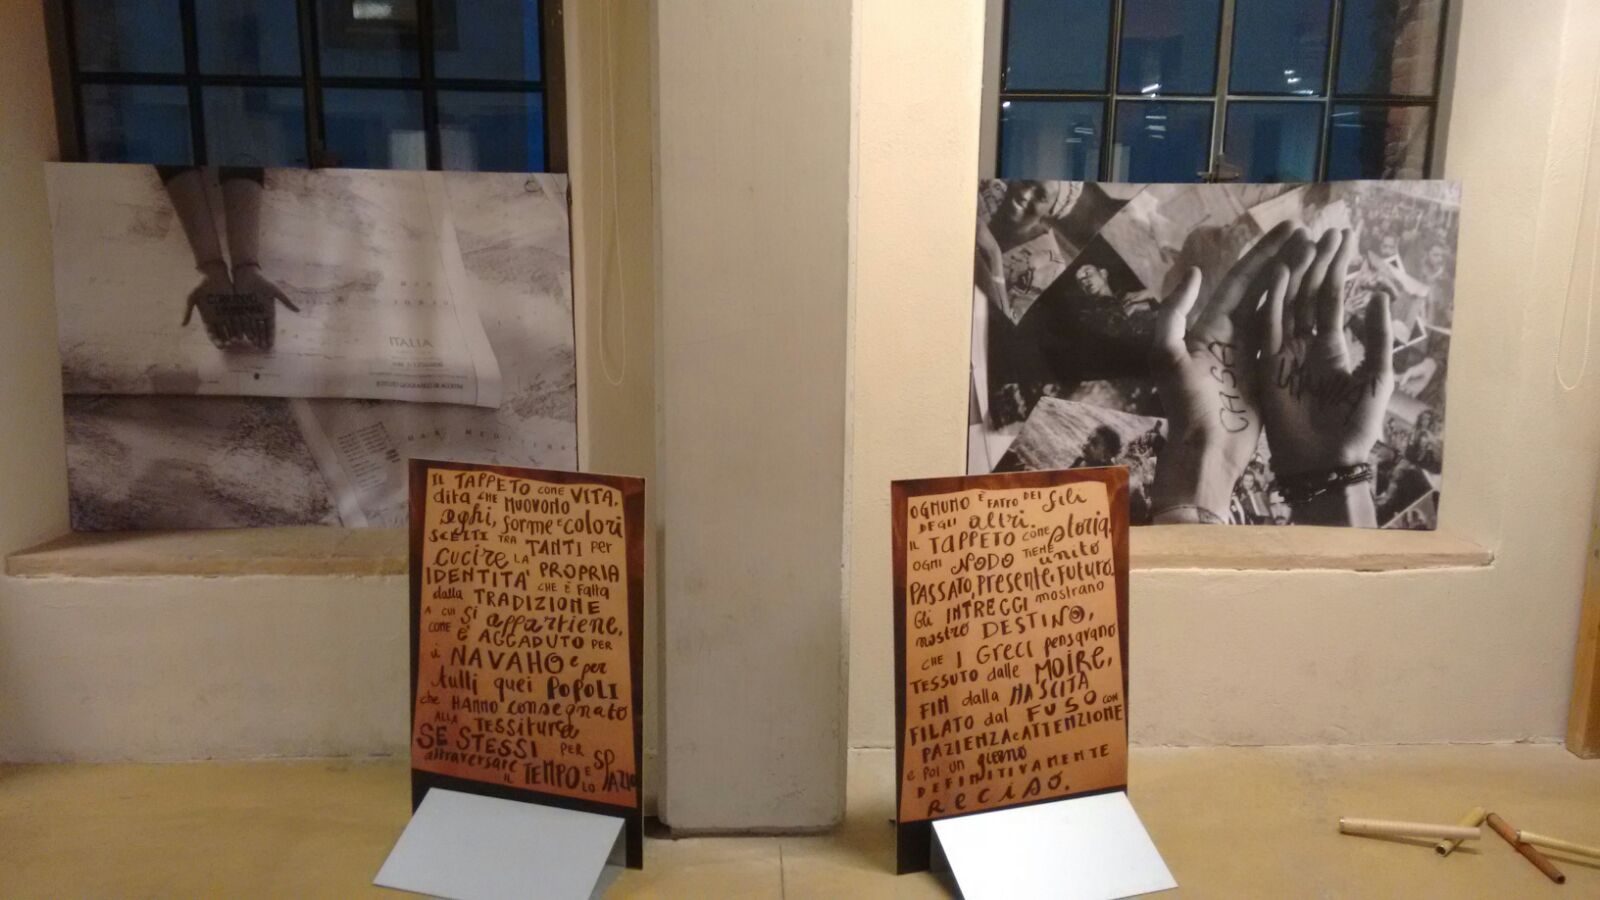 ITALIA
ISTITUTO GEOGRAFICO DE AGOSTINI
MAR MEDITER
CASA
IL TAPPETO COME VITA,
dita CHE MUOVONO
aghi, forme e colori
SCELTI TRA TANTI per
cucire LA PROPRIA
IDENTITA' CHE È fatta
dalla TRADIZIONE
A CUI SI appartiene,
COME È ACCADUTO PER
i NAVAHO e per
tutti quei POPOLI
che HANNO consegnato
ALLA TESSITURA
SE STESSI PER
attraversare IL TEMPO E LO SPAZIO
OGNUNO È FATTO DEI fili
DEGLI altri.
IL TAPPETO COME storia,
OGNI NODO TIENE unito
PASSATO, PRESENTE e FUTURO.
Gli INTRECCI mostrano
nostro DESTINO,
CHE I GRECI pensavano
TESSUTO dalle MOIRE,
FIN dalla NASCITA
FILATO dal FUSO CON
PAZIENZA e ATTENZIONE
e POI UN giorno
DEFINITIVAMENTE
RECISO.